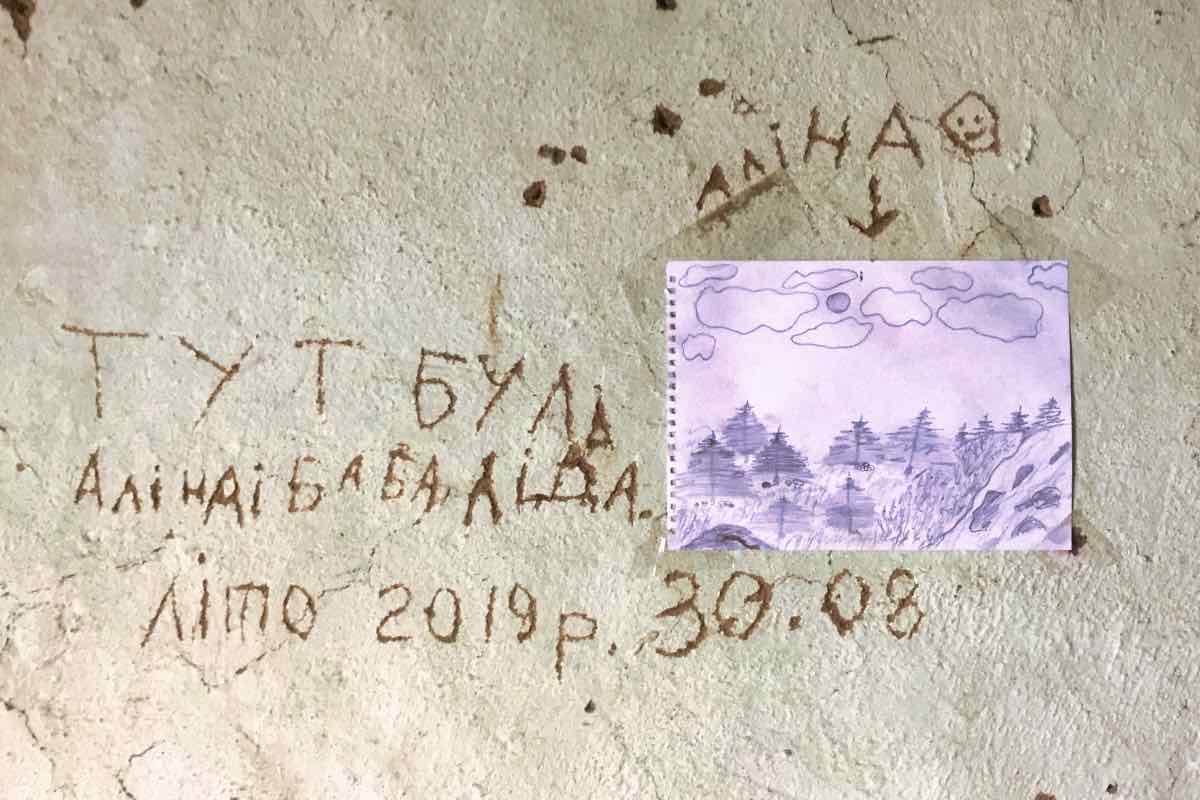 АЛІНА
ТУТ БУЛА
АЛІНА І БАБА ЛІДА.
ЛІТО 2019 р. 30.08